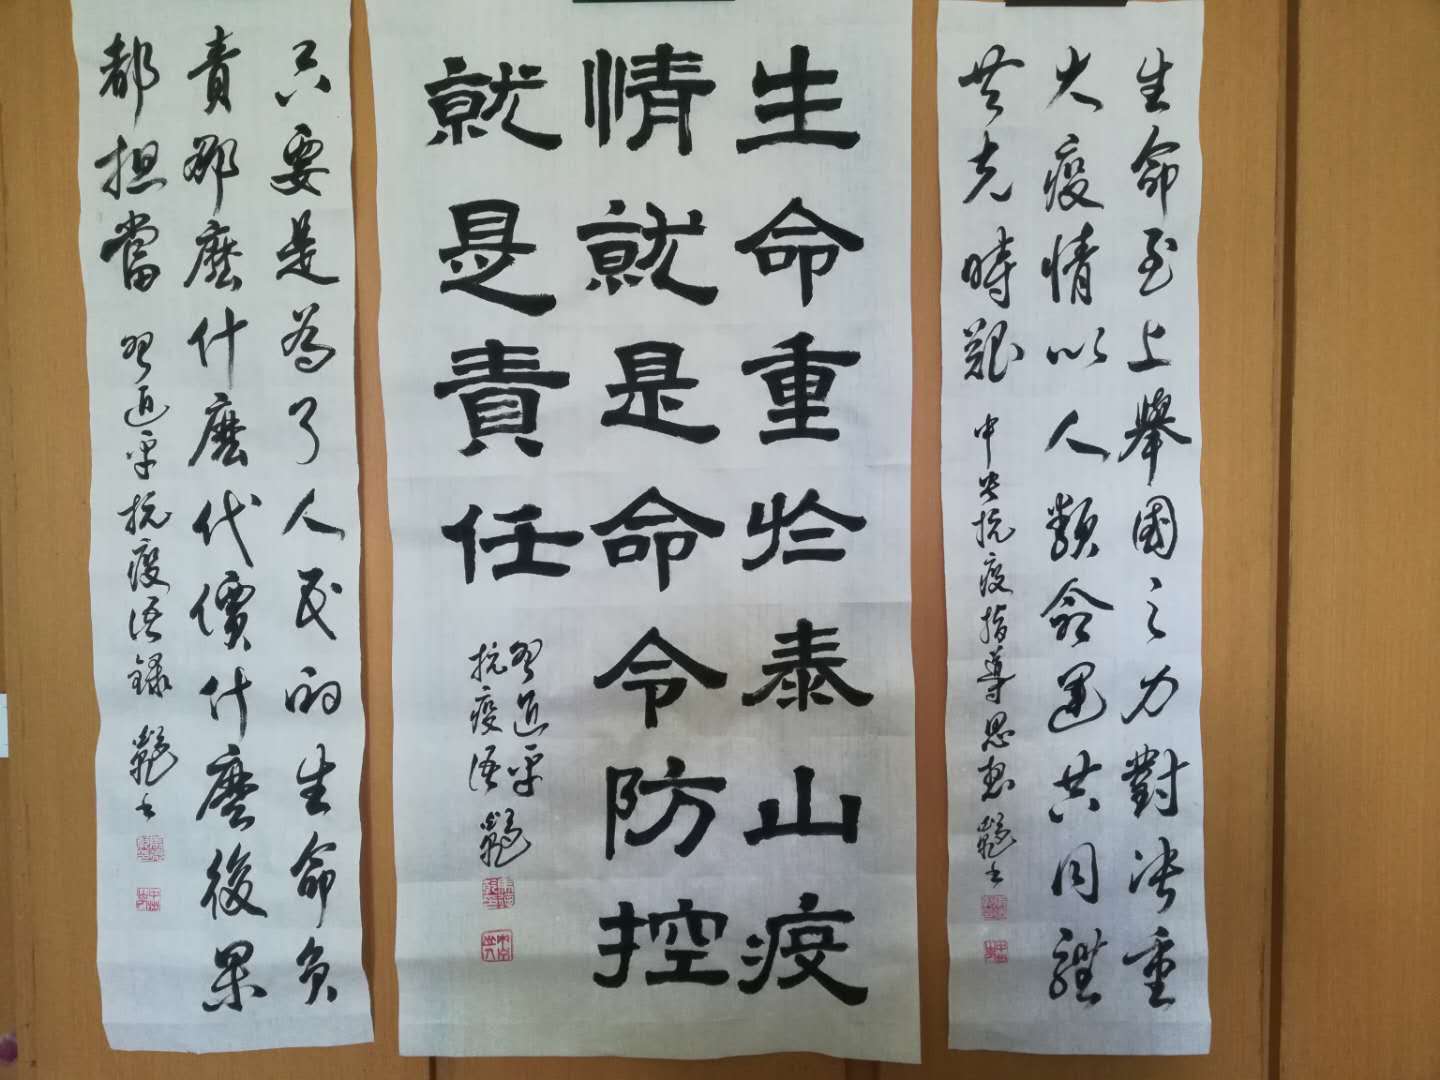 生命至上舉國之力對决重
大疫情以人類命運共同體
共克時艱 中央抗疫指導思想 書
生命重於泰山疫
情就是命令防控
就是責任
習近平
抗疫語
只要是為了人民的生命負
責那麼什麼代價什麼後果
都担當 習近平抗疫語錄 書